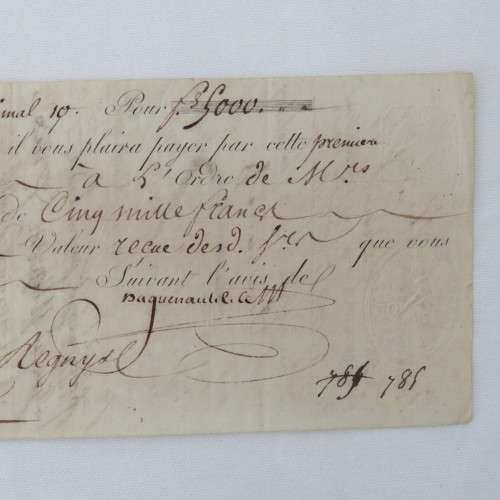 imal 19. Pour f.s 5000.
il vous plaira payer par cette premiere
à L'Ordre de M.rs
de Cinq mille francs
Valeur recue desd. S.rs que vous
Suivant l'avis de
Daguenault & C
Regny
785 785